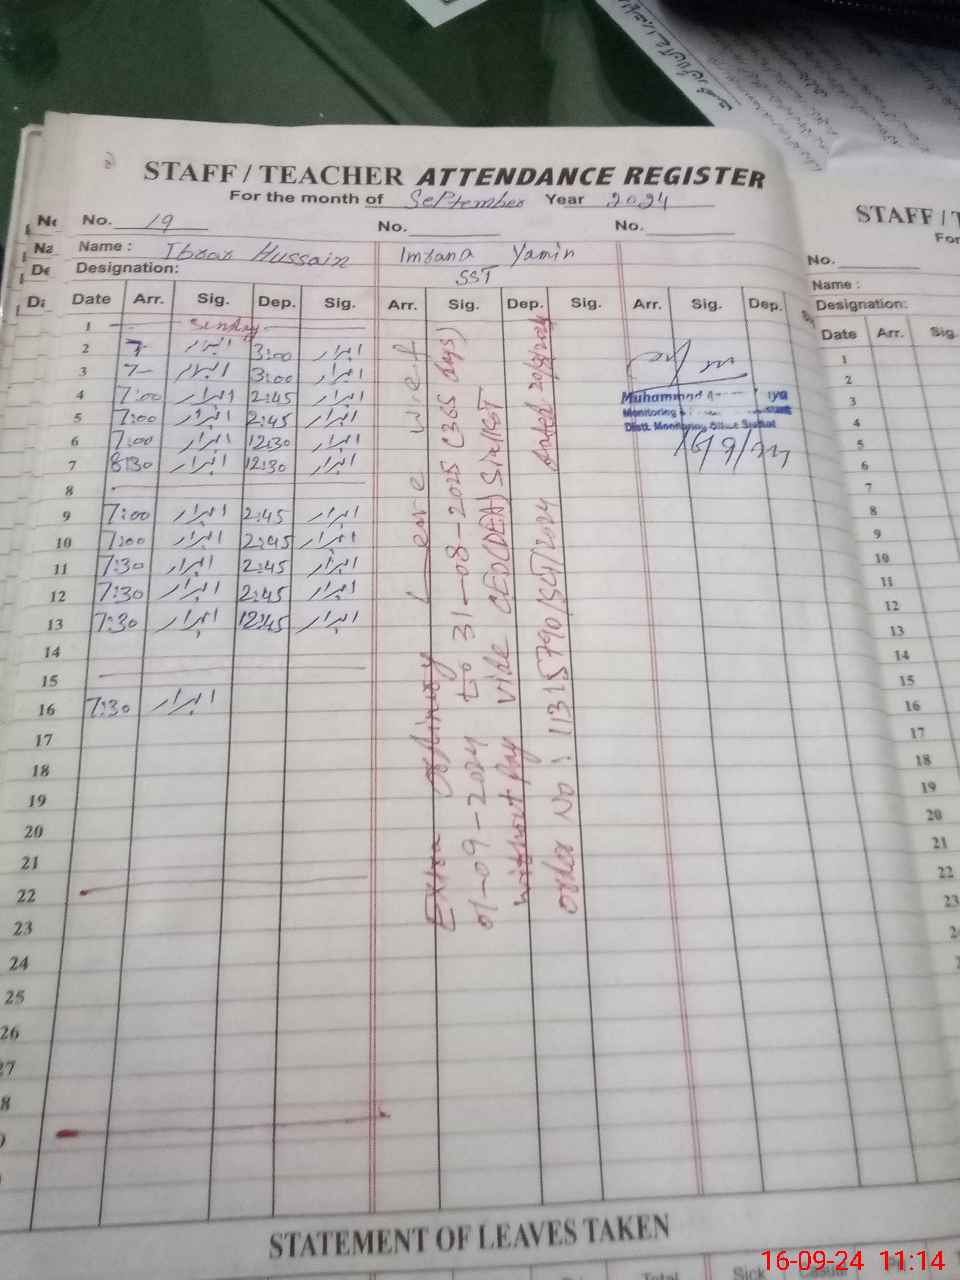 STAFF / TEACHER ATTENDANCE REGISTER
For the month of September Year 2024
No. 19 No. No.
Name : Ibrar Hussain Imrana Yamin
Designation: SST
Date Arr. Sig. Dep. Sig. Arr. Sig. Dep. Sig. Arr. Sig. Dep.
1 Sunday
2 7- ابرار 3:00 ابرار
3 7- ابرار 3:00 ابرار
4 7:00 ابرار 2:45 ابرار
5 7:00 ابرار 2:45 ابرار
6 7:00 ابرار 12:30 ابرار
7 8:30 ابرار 12:30 ابرار
8
9 7:00 ابرار 2:45 ابرار
10 7:00 ابرار 2:45 ابرار
11 7:30 ابرار 2:45 ابرار
12 7:30 ابرار 2:45 ابرار
13 7:30 ابرار 12:45 ابرار
14
15
16 7:30 ابرار
17
18
19
20
21
22
23
24
25
26
27
8
Extra Ordinary Leave w.e.f
01-09-2024 to 31-08-2025 (365 days)
without pay vide CEO(DEA) Sialkot
order No:
Muhammad
Monitoring
Distt. Monitoring Office Sialkot
16/9/24
STATEMENT OF LEAVES TAKEN
Total Sick
STAFF / T
For
No.
Name :
Designation:
Date Arr. Sig.
1
2
3
4
5
6
7
8
9
10
11
12
13
14
15
16
17
18
19
20
21
22
23
No.
Na
De
Da
16-09-24 11:14